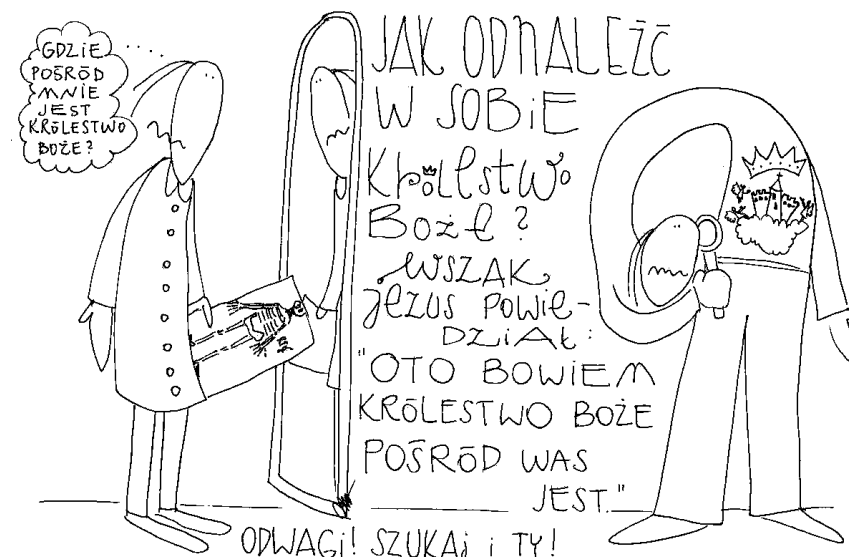 GDZIE
POŚRÓD
MNIE
JEST
KRÓLESTWO
BOŻE?
JAK ODNALEŹĆ
W SOBIE
KRÓLESTWO
BOŻE?
WSZAK
JEZUS POWIE-
DZIAŁ:
"OTO BOWIEM
KRÓLESTWO BOŻE
POŚRÓD WAS
JEST."
ODWAGI! SZUKAJ i TY!